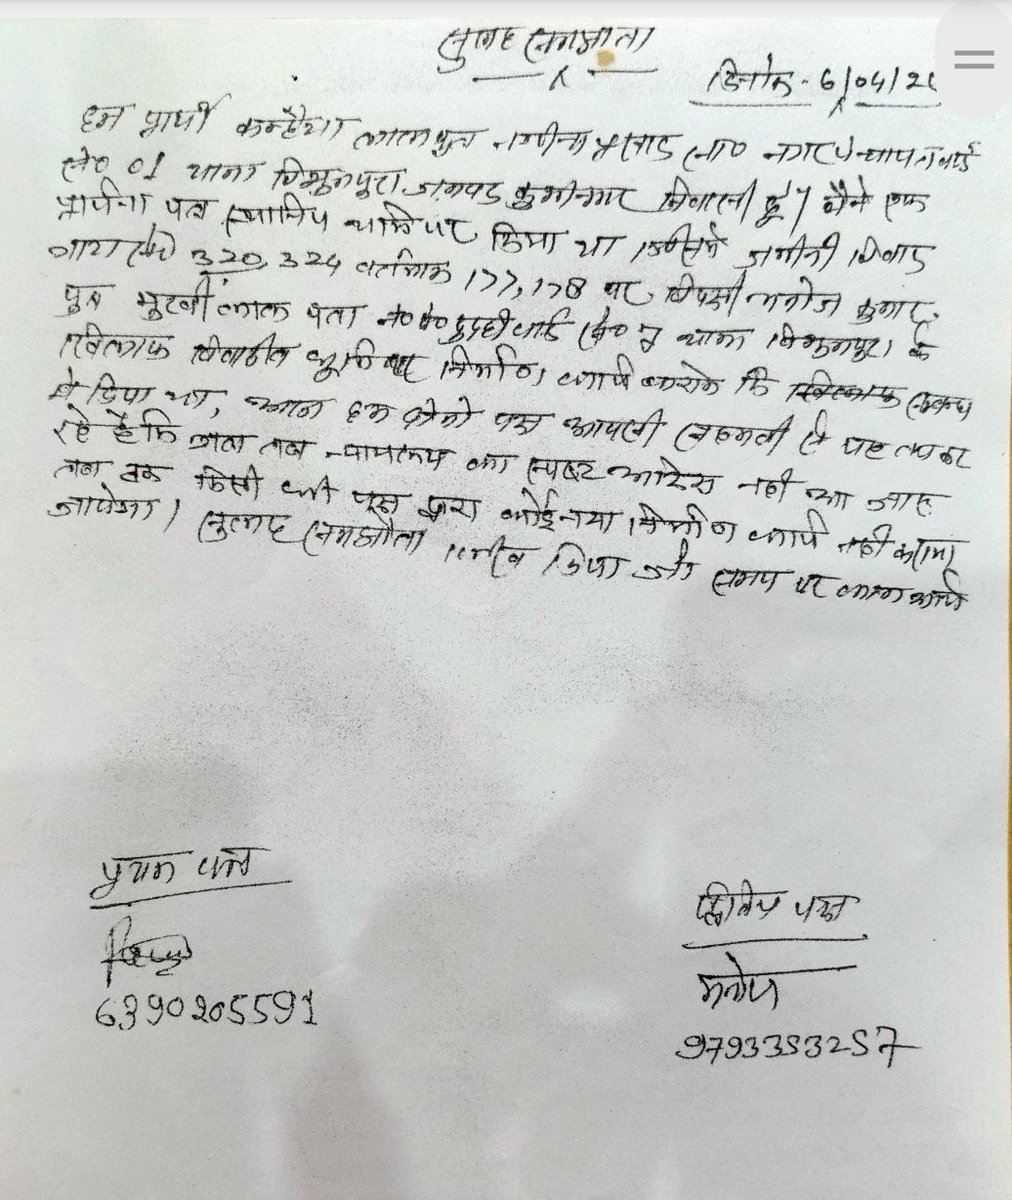 सुलह समझौता
दिनांक - 6/04/2
हम प्रार्थी कन्हैया लाल पुत्र नगीना प्रसाद सा० नगर पंचायत वार्ड
न० 01 थाना विशुनपुरा जनपद कुशीनगर निवासी हूँ। मैने एक
प्रार्थना पत्र स्थानिय थाने पर दिया था जिसमे जमीनी विवाद
320, 324 वर्तमान 177, 178 पर विपक्षी मनोज कुमार
पुत्र मुरली लाल पता न० प० दुदही वार्ड न० थाना विशुनपुरा के
खिलाफ विवादित भूमि पर निर्माण कार्य कराने कि सम्बन्ध
मे दिया था, आज हम दोनो पक्ष आपसी सहमती से यह तय कर
रहे है कि जब तक न्यायालय का स्पष्ट आदेश नही आ जाता
तब तक किसी भी पक्ष द्वारा कोई नया निर्माण कार्य नही कराया
जायेगा। सुलह समझौता लिख दिया और समय पर काम आये
प्रथम पक्ष
6390205591
द्वितिय पक्ष
मनोज
9793353257